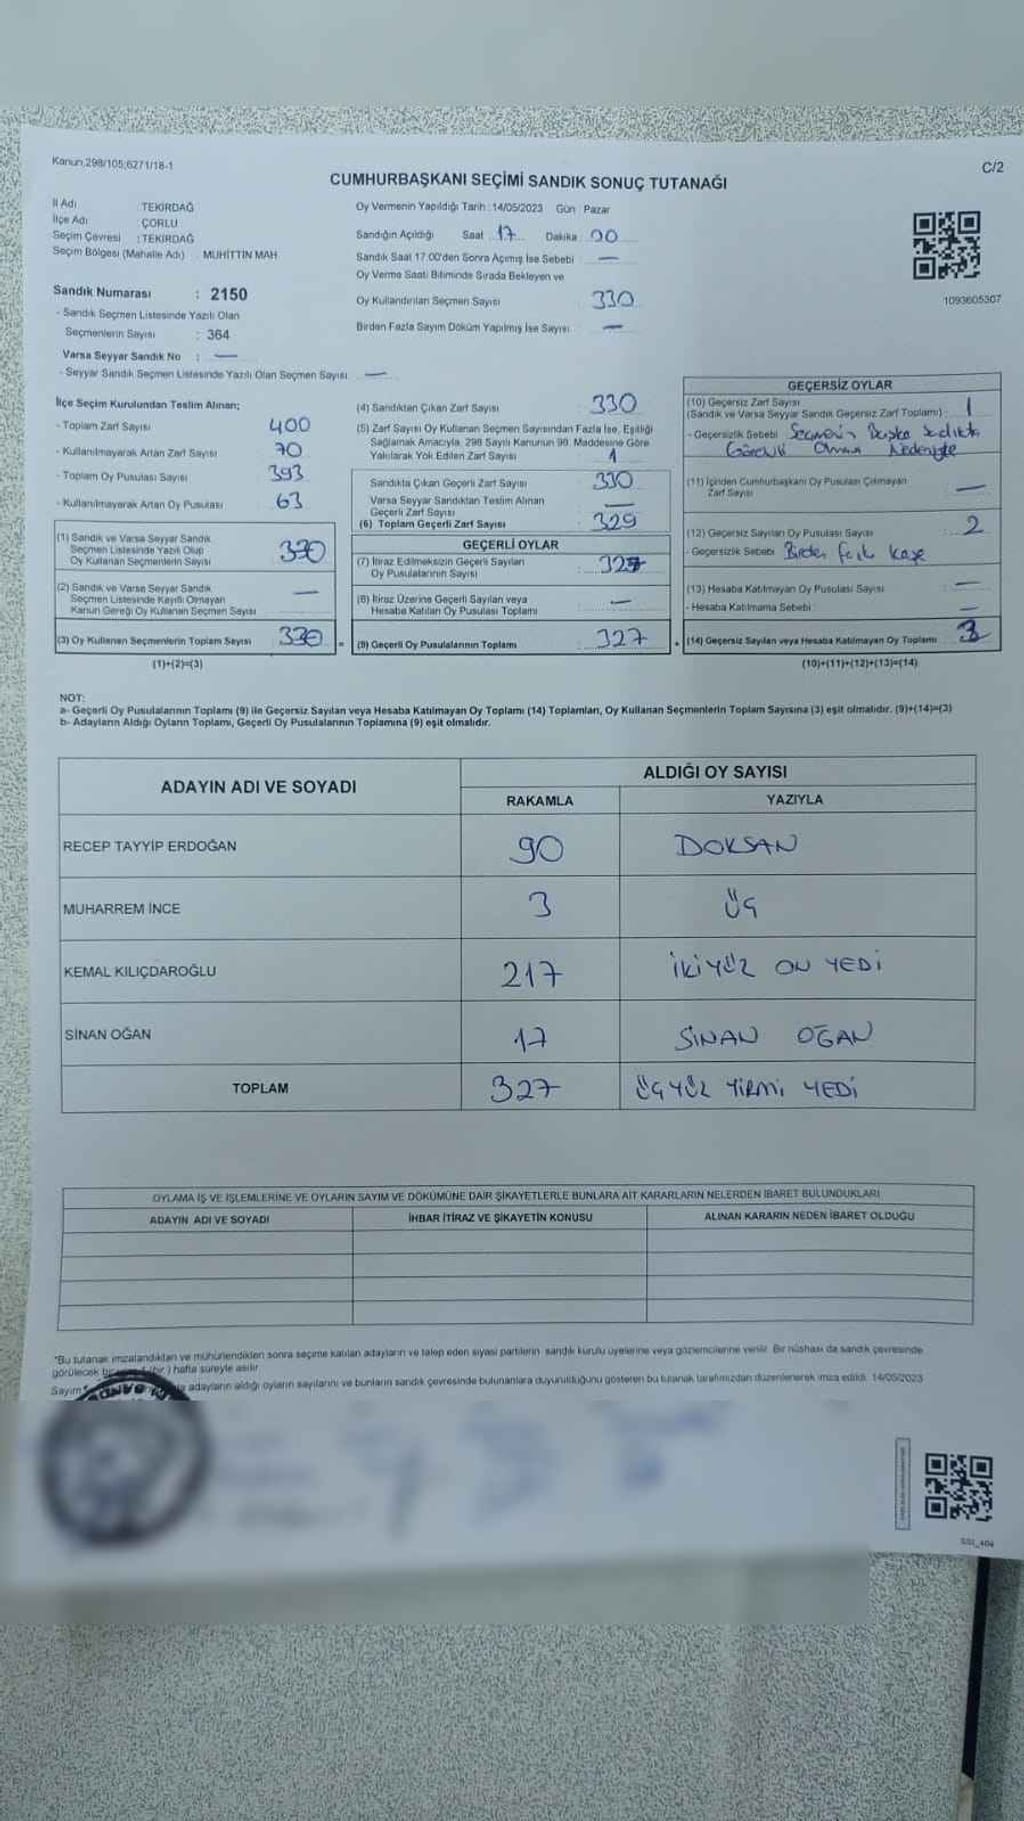 Kanun,298/105;6271/18-1
C/2
CUMHURBAŞKANI SEÇİMİ SANDIK SONUÇ TUTANAĞI
İl Adı TEKİRDAĞ
İlçe Adı ÇORLU
Seçim Çevresi : TEKİRDAĞ
Seçim Bölgesi (Mahalle Adı) MUHİTTİN MAH
Sandık Numarası : 2150
- Sandık Seçmen Listesinde Yazılı Olan
Seçmenlerin Sayısı : 364
Varsa Seyyar Sandık No : —
- Seyyar Sandık Seçmen Listesinde Yazılı Olan Seçmen Sayısı —
Oy Vermenin Yapıldığı Tarih : 14/05/2023 Gün Pazar
Sandığın Açıldığı Saat 17 Dakika 00
Sandık Saat 17.00'den Sonra Açılmış İse Sebebi —
Oy Verme Saati Bitiminde Sırada Bekleyen ve
Oy Kullandırılan Seçmen Sayısı 330
Birden Fazla Sayım Döküm Yapılmış İse Sayısı —
1093605307
İlçe Seçim Kurulundan Teslim Alınan;
- Toplam Zarf Sayısı 400
- Kullanılmayarak Artan Zarf Sayısı 70
- Toplam Oy Pusulası Sayısı 393
- Kullanılmayarak Artan Oy Pusulası 63
(1) Sandık ve Varsa Seyyar Sandık
Seçmen Listesinde Yazılı Olup
Oy Kullanan Seçmenlerin Sayısı 330
(2) Sandık ve Varsa Seyyar Sandık
Seçmen Listesinde Kayıtlı Olmayan
Kanun Gereği Oy Kullanan Seçmen Sayısı —
(3) Oy Kullanan Seçmenlerin Toplam Sayısı 330 =
(1)+(2)=(3)
(4) Sandıktan Çıkan Zarf Sayısı 330
(5) Zarf Sayısı Oy Kullanan Seçmen Sayısından Fazla İse, Eşitliği
Sağlamak Amacıyla, 298 Sayılı Kanunun 98. Maddesine Göre
Yakılarak Yok Edilen Zarf Sayısı 1
Sandıkta Çıkan Geçerli Zarf Sayısı 330
Varsa Seyyar Sandıktan Teslim Alınan
Geçerli Zarf Sayısı —
(6) Toplam Geçerli Zarf Sayısı 329
GEÇERLİ OYLAR
(7) İtiraz Edilmeksizin Geçerli Sayılan
Oy Pusulalarının Sayısı 327
(8) İtiraz Üzerine Geçerli Sayılan veya
Hesaba Katılan Oy Pusulası Toplamı —
(9) Geçerli Oy Pusulalarının Toplamı 327 +
GEÇERSİZ OYLAR
(10) Geçersiz Zarf Sayısı
(Sandık ve Varsa Seyyar Sandık Geçersiz Zarf Toplamı) : 1
- Geçersizlik Sebebi Seçmenin Başka Sandıkta
Görevli Olması Nedeniyle
(11) İçinden Cumhurbaşkanı Oy Pusulası Çıkmayan
Zarf Sayısı —
(12) Geçersiz Sayılan Oy Pusulası Sayısı : 2
- Geçersizlik Sebebi Birden fazla kaşe
(13) Hesaba Katılmayan Oy Pusulası Sayısı —
- Hesaba Katılmama Sebebi —
(14) Geçersiz Sayılan veya Hesaba Katılmayan Oy Toplamı 3
(10)+(11)+(12)+(13)=(14)
NOT:
a- Geçerli Oy Pusulalarının Toplamı (9) ile Geçersiz Sayılan veya Hesaba Katılmayan Oy Toplamı (14) Toplamları, Oy Kullanan Seçmenlerin Toplam Sayısına (3) eşit olmalıdır. (9)+(14)=(3)
b- Adayların Aldığı Oyların Toplamı, Geçerli Oy Pusulalarının Toplamına (9) eşit olmalıdır.
ADAYIN ADI VE SOYADI ALDIĞI OY SAYISI
RAKAMLA YAZIYLA
RECEP TAYYİP ERDOĞAN 90 DOKSAN
MUHARREM İNCE 3 ÜÇ
KEMAL KILIÇDAROĞLU 217 İKİYÜZ ON YEDİ
SİNAN OĞAN 17 SİNAN OĞAN
TOPLAM 327 ÜÇYÜZ YİRMİ YEDİ
OYLAMA İŞ VE İŞLEMLERİNE VE OYLARIN SAYIM VE DÖKÜMÜNE DAİR ŞİKAYETLERLE BUNLARA AİT KARARLARIN NELERDEN İBARET BULUNDUKLARI
ADAYIN ADI VE SOYADI İHBAR İTİRAZ VE ŞİKAYETİN KONUSU ALINAN KARARIN NEDEN İBARET OLDUĞU
*Bu tutanak imzalandıktan ve mühürlendikten sonra seçime katılan adayların ve talep eden siyasi partilerin sandık kurulu üyelerine veya gözlemcilerine verilir. Bir nüshası da sandık çevresinde
görülecek bir (bir) hafta süreyle asılır
Sayım adayların aldığı oyların sayılarını ve bunların sandık çevresinde bulunanlara duyurulduğunu gösteren bu tutanak tarafımızdan düzenlenerek imza edildi. 14/05/2023